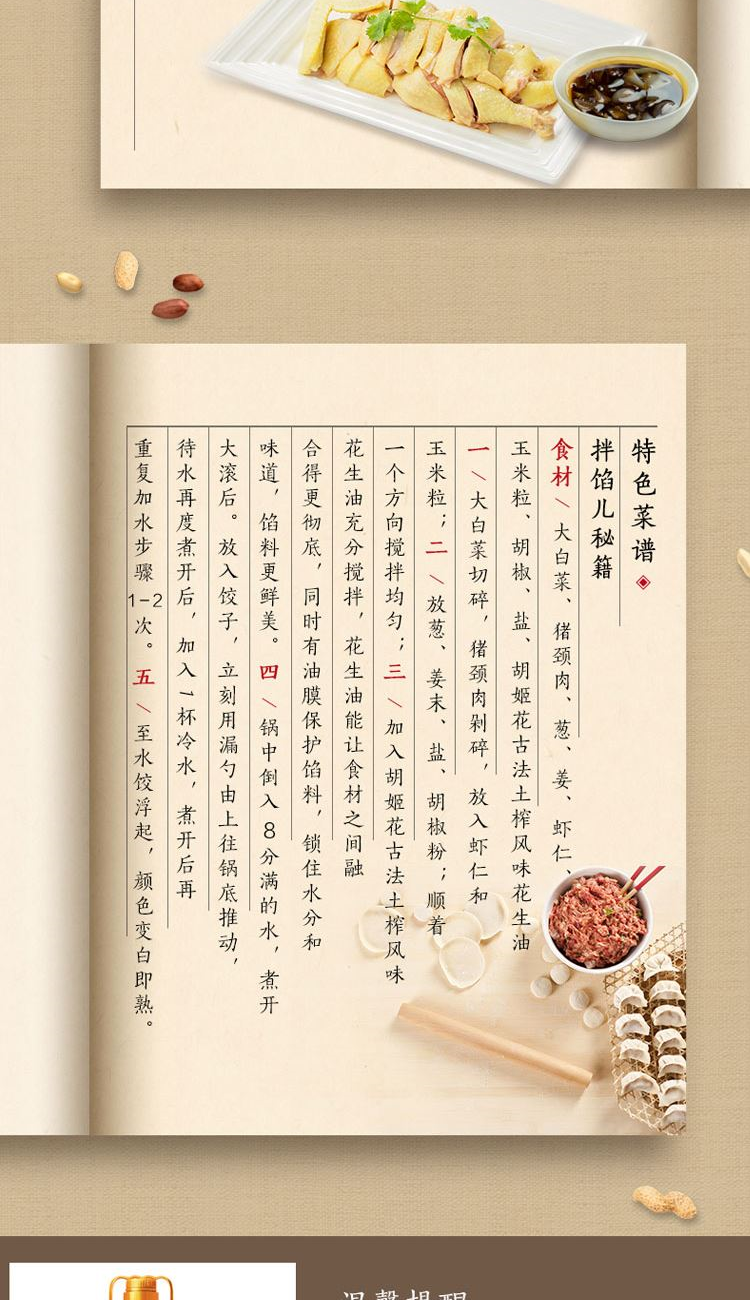 特色菜谱
拌馅儿秘籍
食材\大白菜、猪颈肉、葱、姜、虾仁、
玉米粒、胡椒、盐、胡姬花古法土榨风味花生油
一\大白菜切碎，猪颈肉剁碎，放入虾仁和
玉米粒；二\放葱、姜末、盐、胡椒粉；顺着
一个方向搅拌均匀；三\加入胡姬花古法土榨风味
花生油充分搅拌，花生油能让食材之间融
合得更彻底，同时有油膜保护馅料，锁住水分和
味道，馅料更鲜美。四\锅中倒入8分满的水，煮开
大滚后。放入饺子，立刻用漏勺由上往锅底推动，
待水再度煮开后，加入1杯冷水，煮开后再
重复加水步骤1-2次。五\至水饺浮起，颜色变白即熟。
温馨提醒